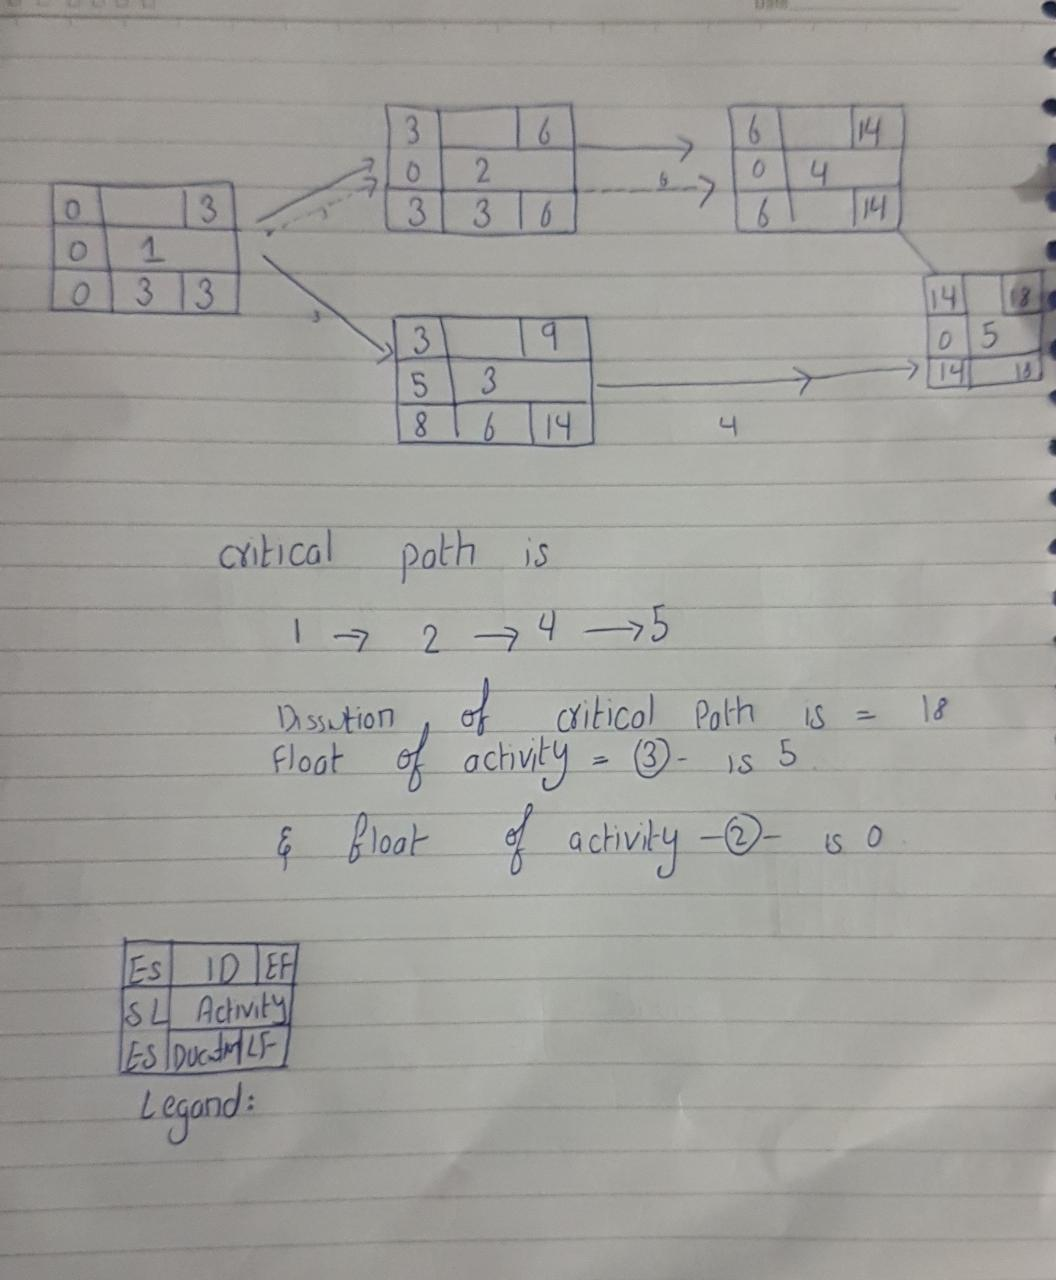 Date
3 6
0 2
3 3 6
6 14
0 4
6 14
0 3
0 1
0 3 3
6
3 9
5 3
8 6 14
3
14 18
0 5
14 18
4
critical path is
1 → 2 → 4 → 5
Dissution of critical Path is = 18
float of activity = ③- is 5
& float of activity -②- is 0
ES ID EF
SL Activity
ES LF
Legand: